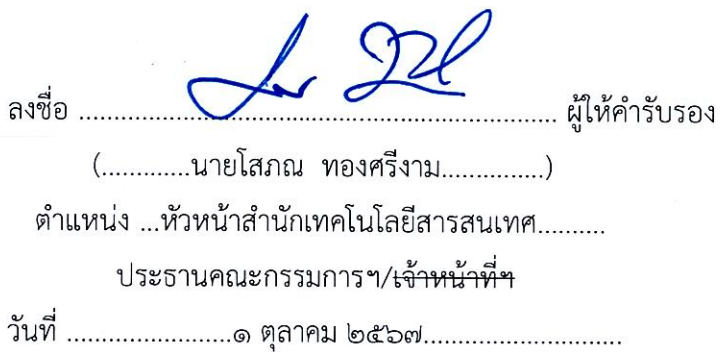 ลงชื่อ ................................................................ ผู้ให้คำรับรอง
(.............นายโสภณ ทองศรีงาม...............)
ตำแหน่ง ...หัวหน้าสำนักเทคโนโลยีสารสนเทศ..........
ประธานคณะกรรมการฯ/เจ้าหน้าที่ฯ
วันที่ ........................๑ ตุลาคม ๒๕๖๗.............................